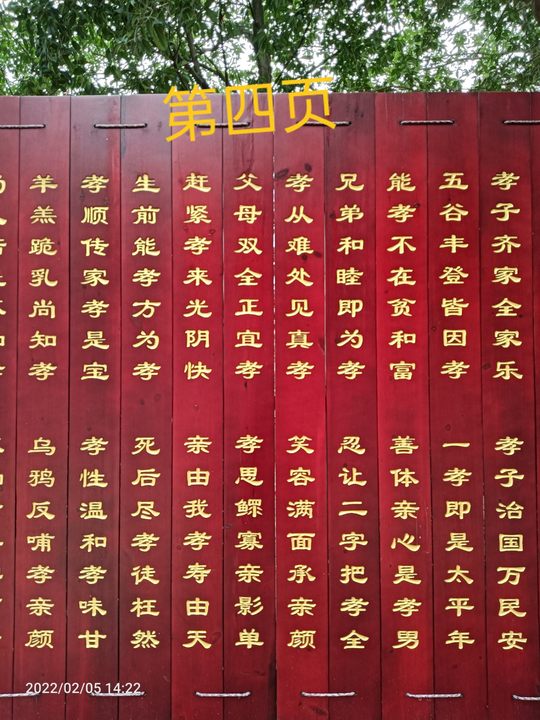 第四页
孝子齐家全家乐 孝子治国万民安
五谷丰登皆因孝 一孝即是太平年
能孝不在贫和富 善体亲心是孝男
兄弟和睦即为孝 忍让二字把孝全
孝从难处见真孝 笑容满面承亲颜
父母双全正宜孝 孝思鳏寡亲影单
赶紧孝来光阴快 亲由我孝寿由天
生前能孝方为孝 死后尽孝徒枉然
孝顺传家孝是宝 孝性温和孝味甘
羊羔跪乳尚知孝 乌鸦反哺孝亲颜
2022/02/05 14:22